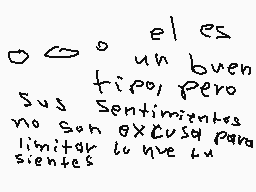 el es
un buen
tipo, pero
sus sentimientos
no son excusa para
limitar lo que tu
sientes